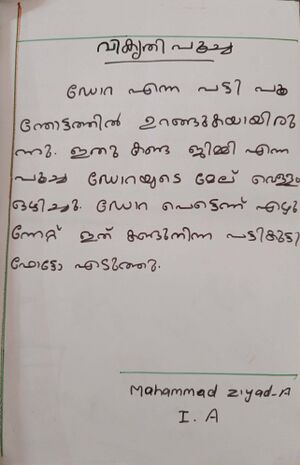 വികൃതി പൂച്ച
ഡോറ എന്ന പട്ടി പൂ
ന്തോട്ടത്തിൽ ഉറങ്ങുകയായിരു
ന്നു. ഇതു കണ്ട ജിമ്മി എന്ന
പൂച്ച ഡോറയുടെ മേല് വെള്ളം
ഒഴിച്ചു. ഡോറ പെട്ടെന്ന് എഴു
ന്നേറ്റ് ഇത് കണ്ടുനിന്ന പട്ടികുട്ടി
ഫോട്ടോ എടുത്തു.
Mahammad Ziyad-A
I. A